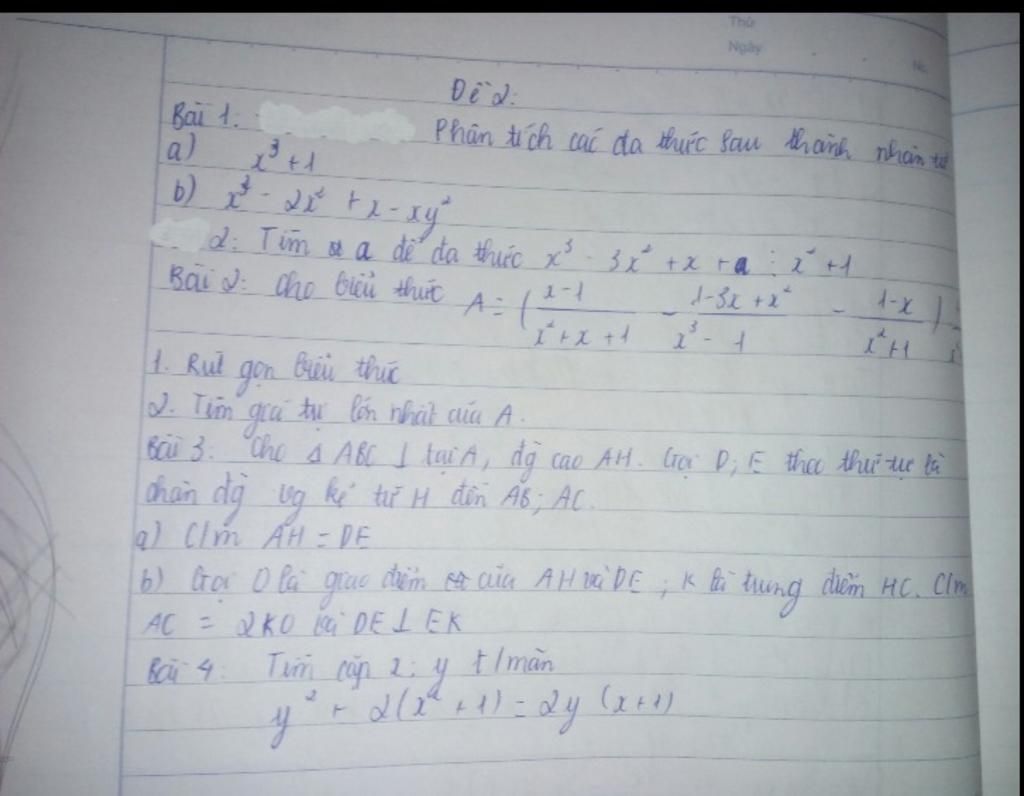 Thứ
Ngày
No.
Đề 2:
Bài 1: Phân tích các đa thức sau thành nhân tử
a) x³ + 1
b) x³ - 2x² + x - xy²
2: Tìm a để đa thức x³ - 3x² + x + a ⋮ x² + 1
Bài 2: Cho biểu thức A = ( (x-1)/(x²+x+1) - (1-3x+x²)/(x³-1) - (1-x)/(x²+1) )
1. Rút gọn biểu thức
2. Tìm giá trị lớn nhất của A.
Bài 3: Cho Δ ABC ⊥ tại A, đg cao AH. Gọi D; E theo thứ tự là
chân đg vg kẻ từ H đến AB; AC.
a) C/m AH = DE
b) Gọi O là giao điểm của AH và DE ; K là trung điểm HC. C/m
AC = 2KO và DE ⊥ EK
Bài 4: Tìm cặp x; y t/mãn
y² + 2(x² + 1) = 2y (x+1)